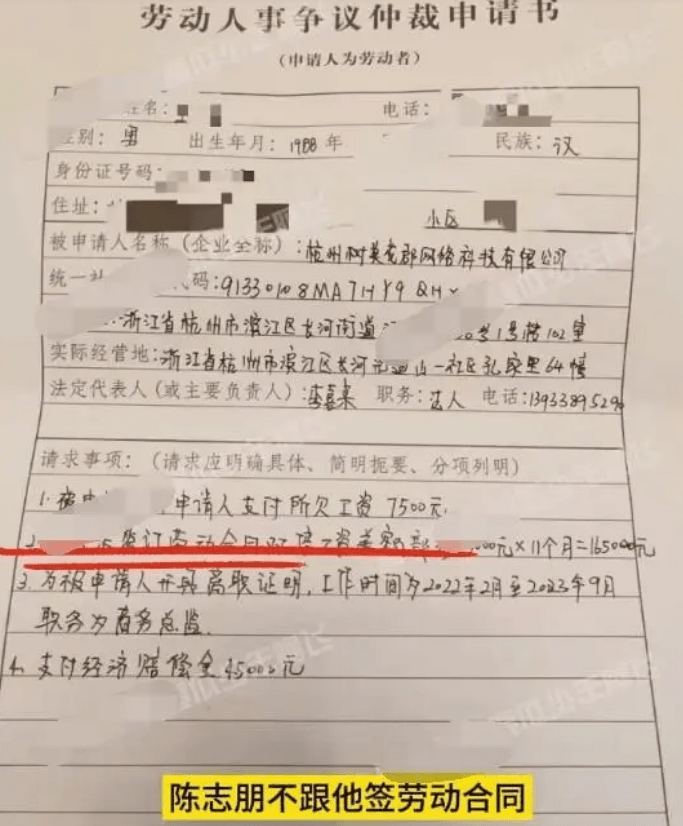 劳动人事争议仲裁申请书
(申请人为劳动者)
姓名: 电话:
性别: 男 出生年月: 1988年 民族: 汉
身份证号码:
住址: 小区
被申请人名称(企业全称): 杭州树英龙郡网络科技有限公司
统一社 代码: 91330108MA7HY9QHX
浙江省杭州市滨江区长河街道 号1号楼102室
实际经营地: 浙江省杭州市滨江区长河 山一社区孔家里64幢
法定代表人(或主要负责人): 李喜来 职务: 法人 电话:
请求事项: (请求应明确具体、简明扼要、分项列明)
1. 被申 申请人支付所欠工资 7500元
2. 签订劳动合同双倍工资差额部 元×11个月=165000元
3. 为被申请人开具离职证明, 工作时间为2022年2月至2023年9月
职务为商务总监.
4. 支付经济赔偿金45000元
陈志朋不跟他签劳动合同